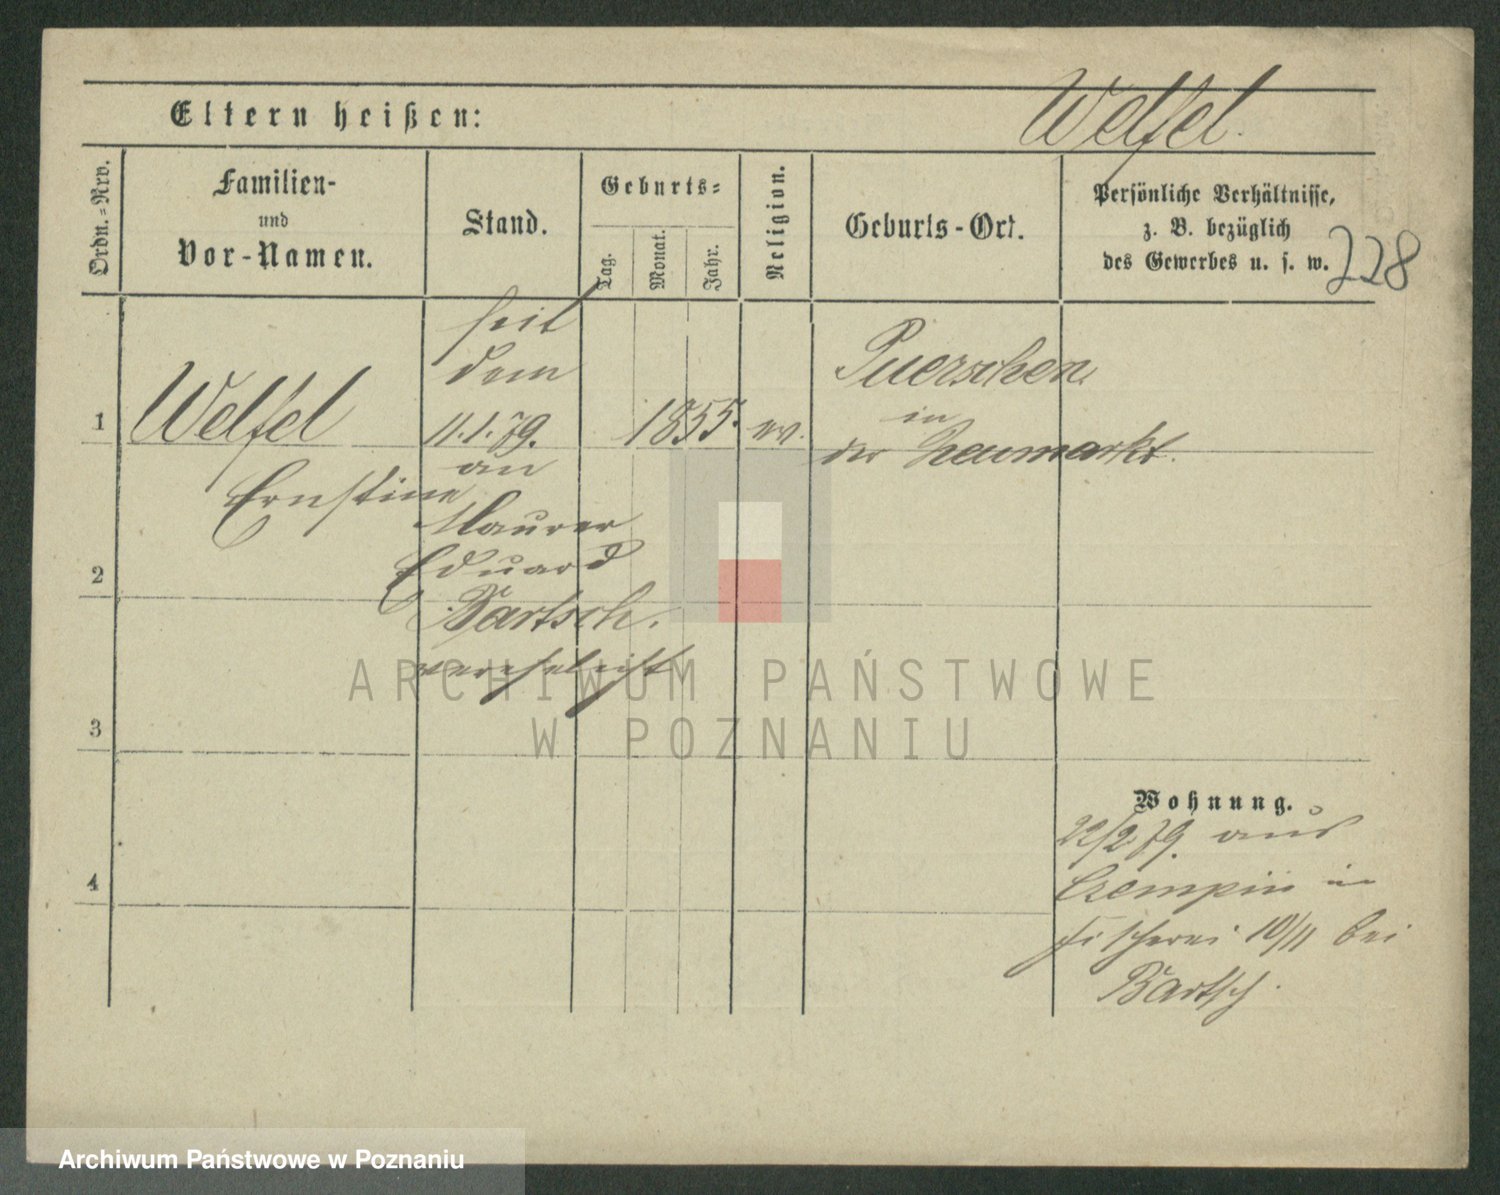 Eltern heißen:
Welfel.
Ordn.=Nro.
Familien-
und
Vor-Namen.
Stand.
Geburts=
Tag.
Monat.
Jahr.
Religion.
Geburts-Ort.
Persönliche Verhältnisse,
z. B. bezüglich
des Gewerbes u. s. w.
228
1
Welfel
Ernstine
seit
dem
11.1.79.
an
Maurer
Eduard
Bartsch.
verehelicht
1855.
ev.
Puerschen
in
der Neumarkt.
2
3
4
Wohnung.
22/2 79. aus
Czempin in
Fischerei 10/11 bei
Bartsch.
ARCHIWUM PAŃSTWOWE
W POZNANIU
Archiwum Państwowe w Poznaniu